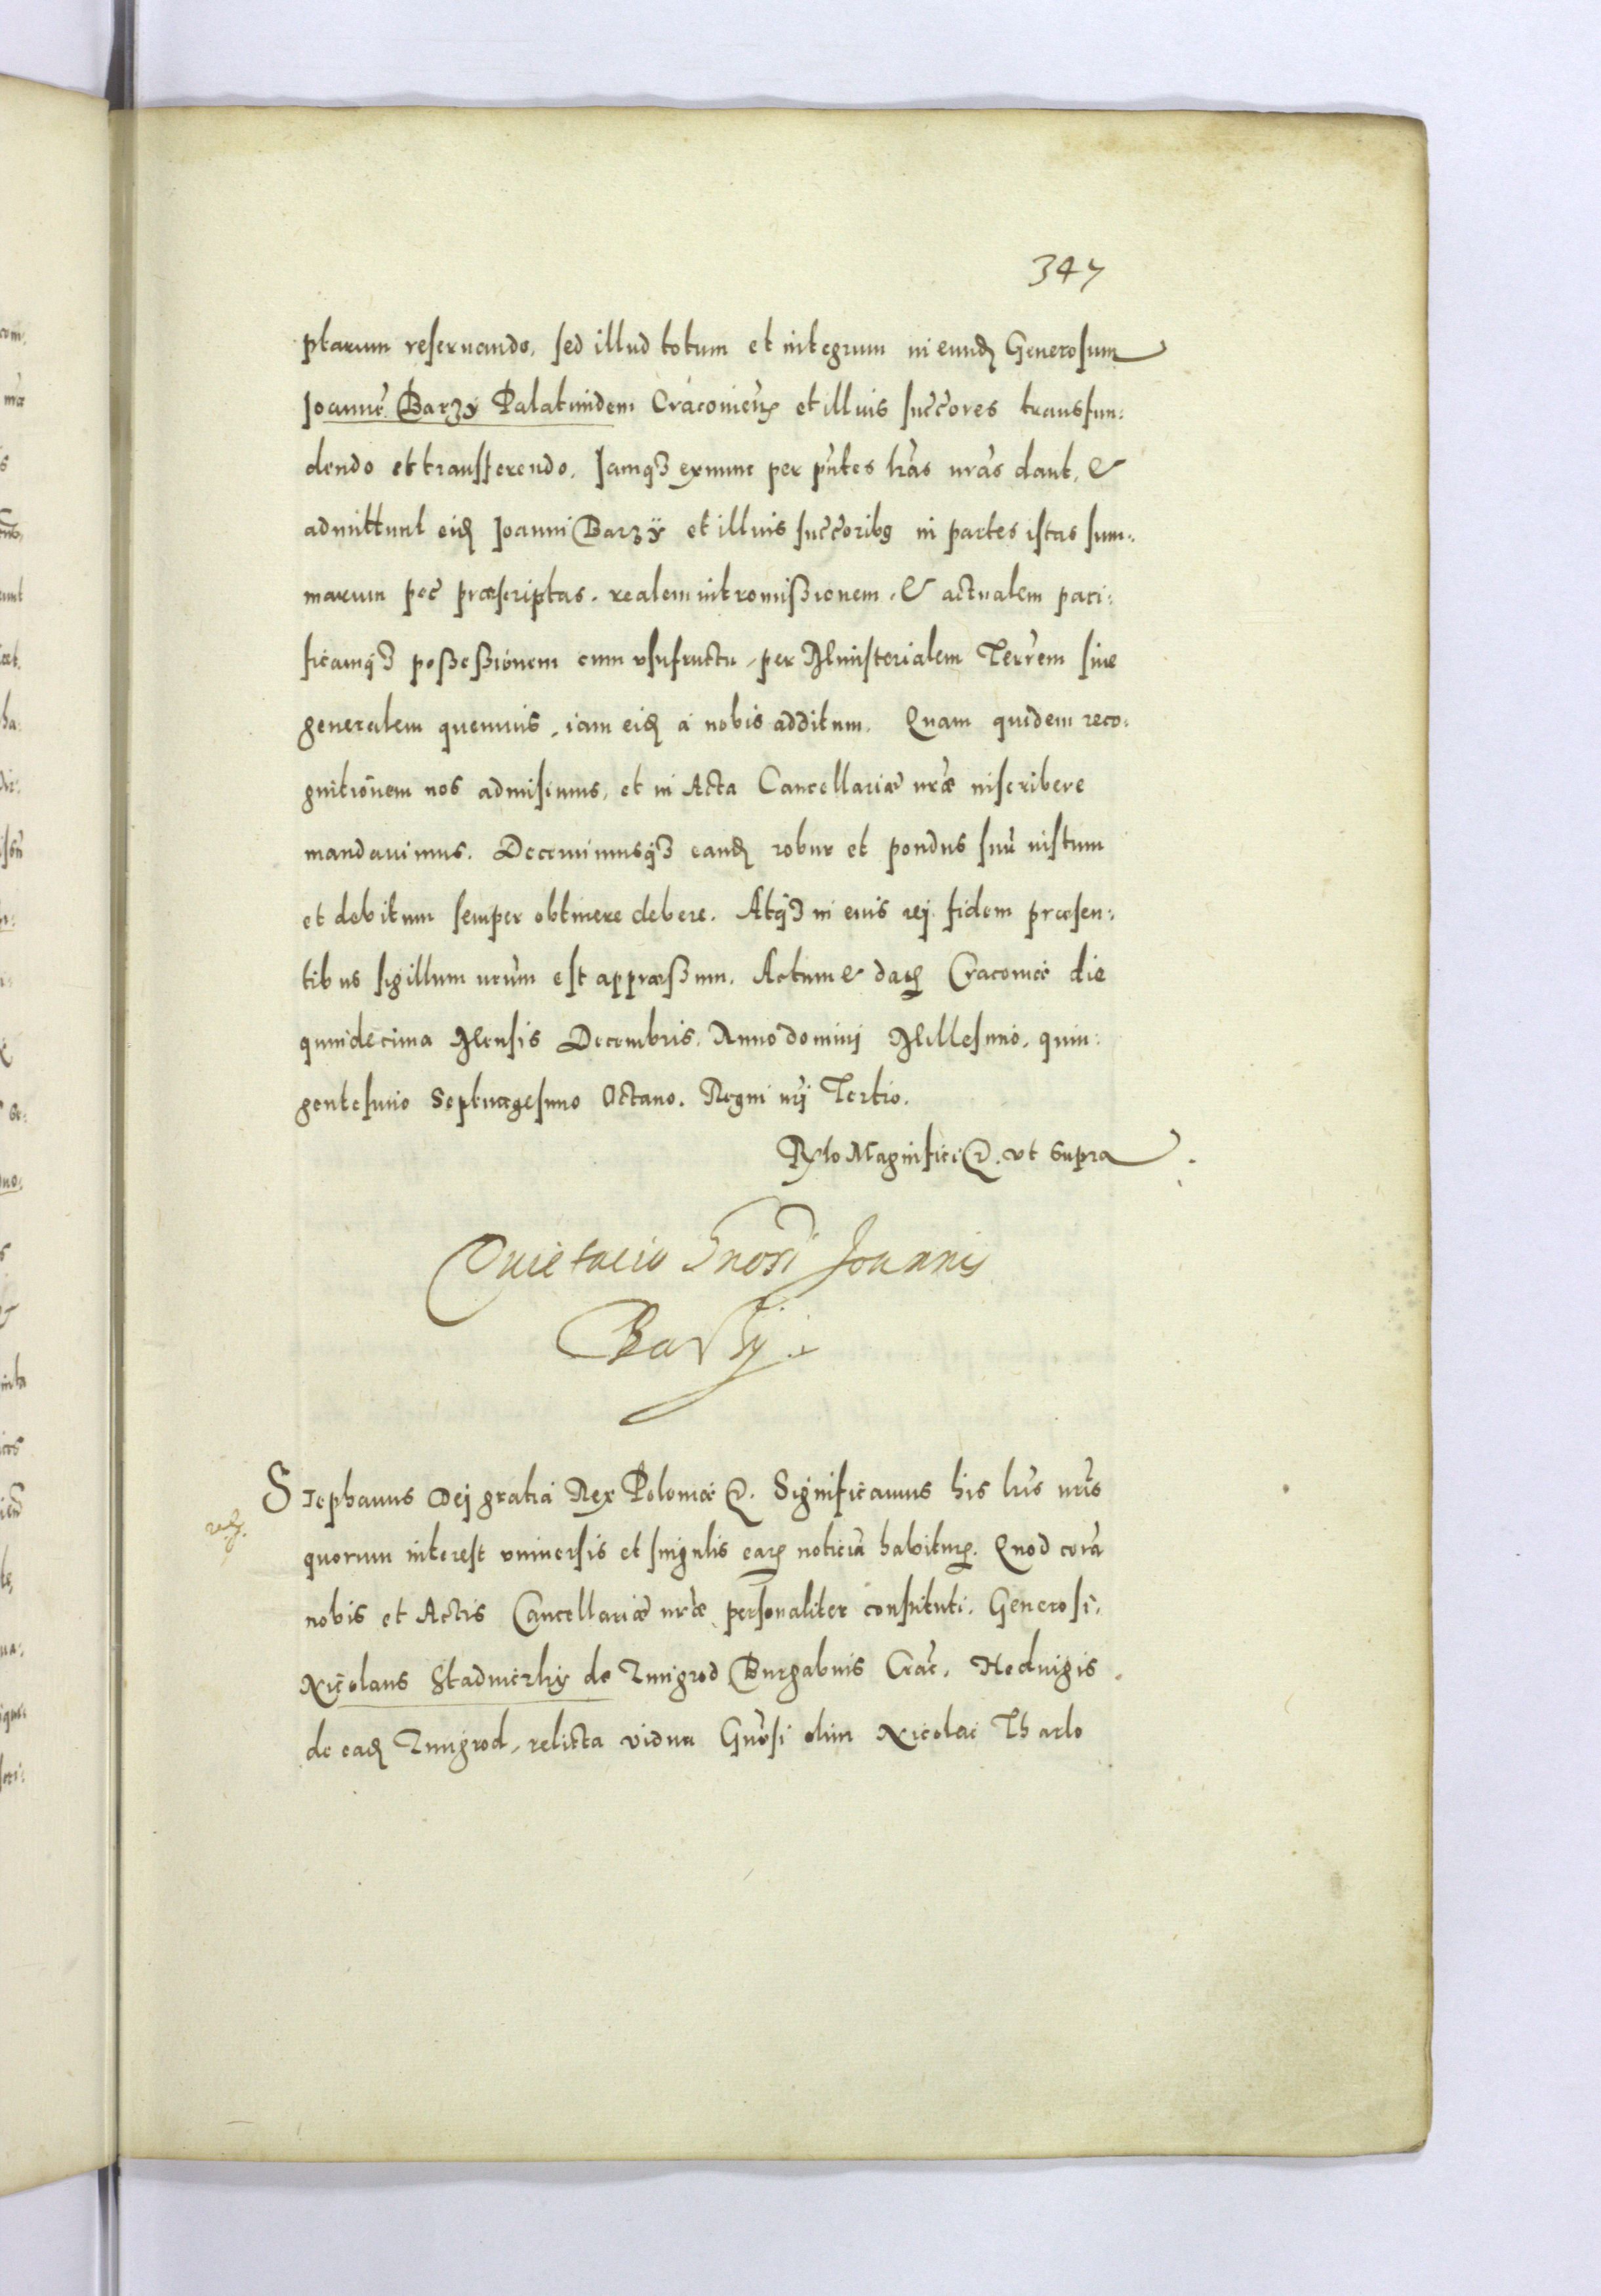 347
ptarum reseruando, sed illud totum et integrum in eund Generosum
Joannẽ Barzÿ Palatinidem Cracovieñ et illius succ̃ores transfun:
dendo et transferendo. Jamq3 exnunc per pñtes lrãs nrãs dant, &
admittunt eid Joanni Barzÿ et illius succ̃orib9 in partes istas sum:
marum pec̃ præscriptas, realem intromißionem, & actualem paci:
ficamq3 poßeßionem cum vsufructu, per Ministerialem Terr̃em siue
generalem quemuis, iam eid à nobis additum. Quam quidem reco:
gnitionem nos admisimus, et in Acta Cancellariæ nr̃æ inscribere
mandauimus. Decernimusq3 eand robur et pondus suũ iustum
et debitum semper obtinere debere. Atq3 in eius rej fidem præsen:
tibus sigillum nrũm est appræßum. Actum & dat Cracoviæ die
quindecima Mensis Decembris. Anno dominj Millesimo, quin:
gentesimo Septuagesimo Octauo. Regni nrj Tertio.
Rlto Magnifici &. vt supra
Quietacio Gnosi Joannis
Barzÿ
Stephanus Dej gratia Rex Poloniæ &. Significamus his lrĩs nrĩs
quorum interest vniuersis et singulis ear noticiã habitur. Quod corã
nobis et Actis Cancellariæ nr̃æ personaliter constituti. Generosi.
Nicolaus Stadniczky de Zmigrod Burgabius Crac̃. Heduigis
de ead Zmigrod, relicta vidua Gnõsi olim Nicolai Tharlo